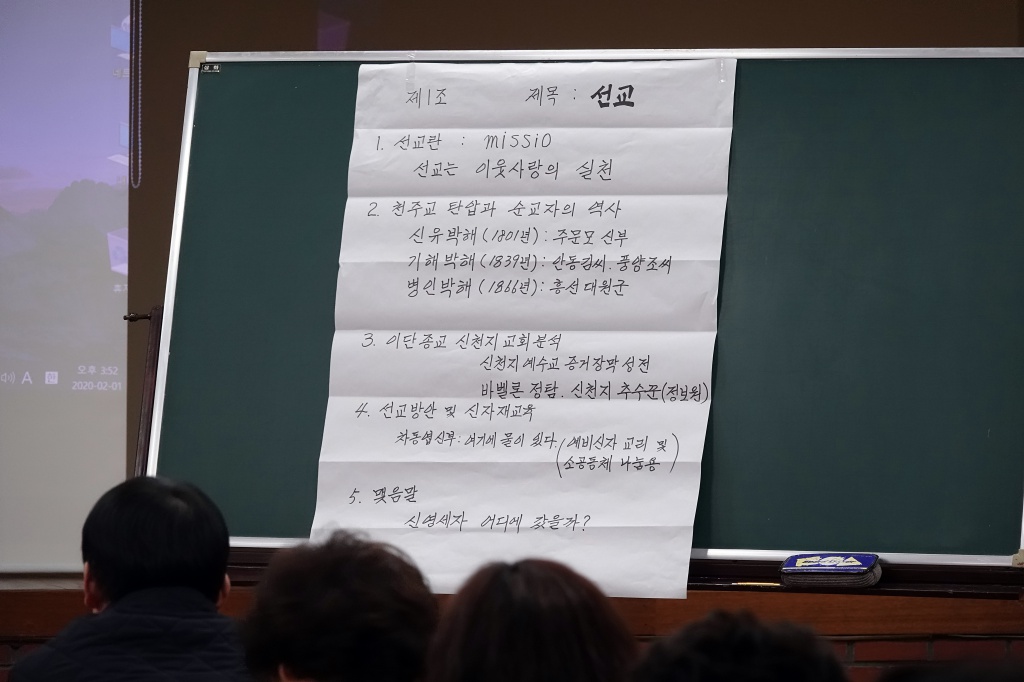 제1조 제목 : 선교
1. 선교란 : missio
선교는 이웃사랑의 실천
2. 천주교 탄압과 순교자의 역사
신유박해(1801년) : 주문모 신부
기해박해(1839년) : 안동김씨. 풍양조씨
병인박해(1866년) : 흥선대원군
3. 이단종교 신천지 교회분석
신천지 예수교 증거장막성전
바벨론 정탐. 신천지 추수꾼(정보원)
4. 선교방안 및 신자재교육
차동엽신부 : 여기에 물이 있다 (예비신자 교리 및
소공동체 나눔용)
5. 맺음말
신영세자 어디에 갔을까?
A 한
오후 3:52
2020-02-01